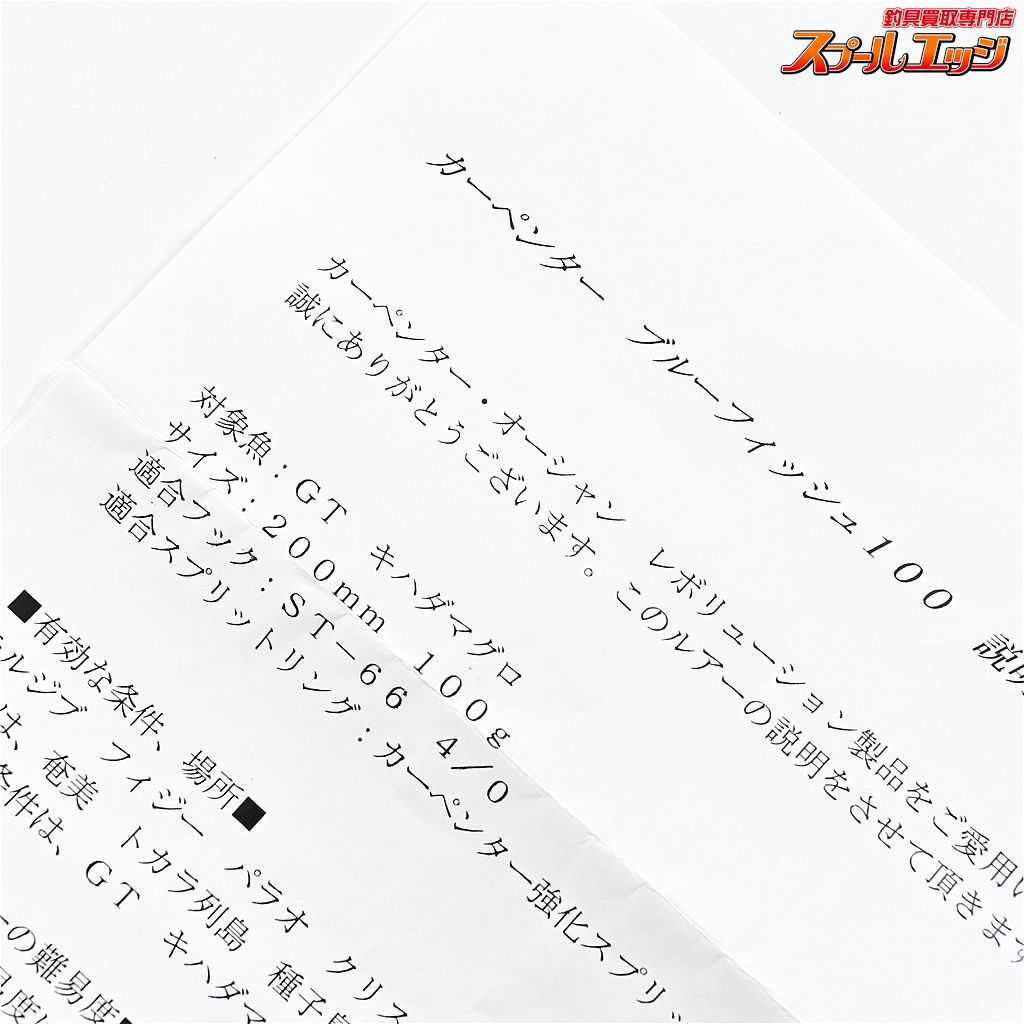 釣具買取専門店
スプールエッジ
カーペンター ブルーフィッシュ100 説明
カーペンター・オーシャン レボリューション製品をご愛用い
誠にありがとうございます。このルアーの説明をさせて頂きます
対象魚：GT キハダマグロ
サイズ：200mm 100g
適合フック：ST－66 4/0
適合スプリットリング：カーペンター強化スプリッ
■有効な条件、場所■
ルジブ フィジー パラオ クリス
は、奄美 トカラ列島 種子島
条件は、GT キハダマ
の難易度■
易度は